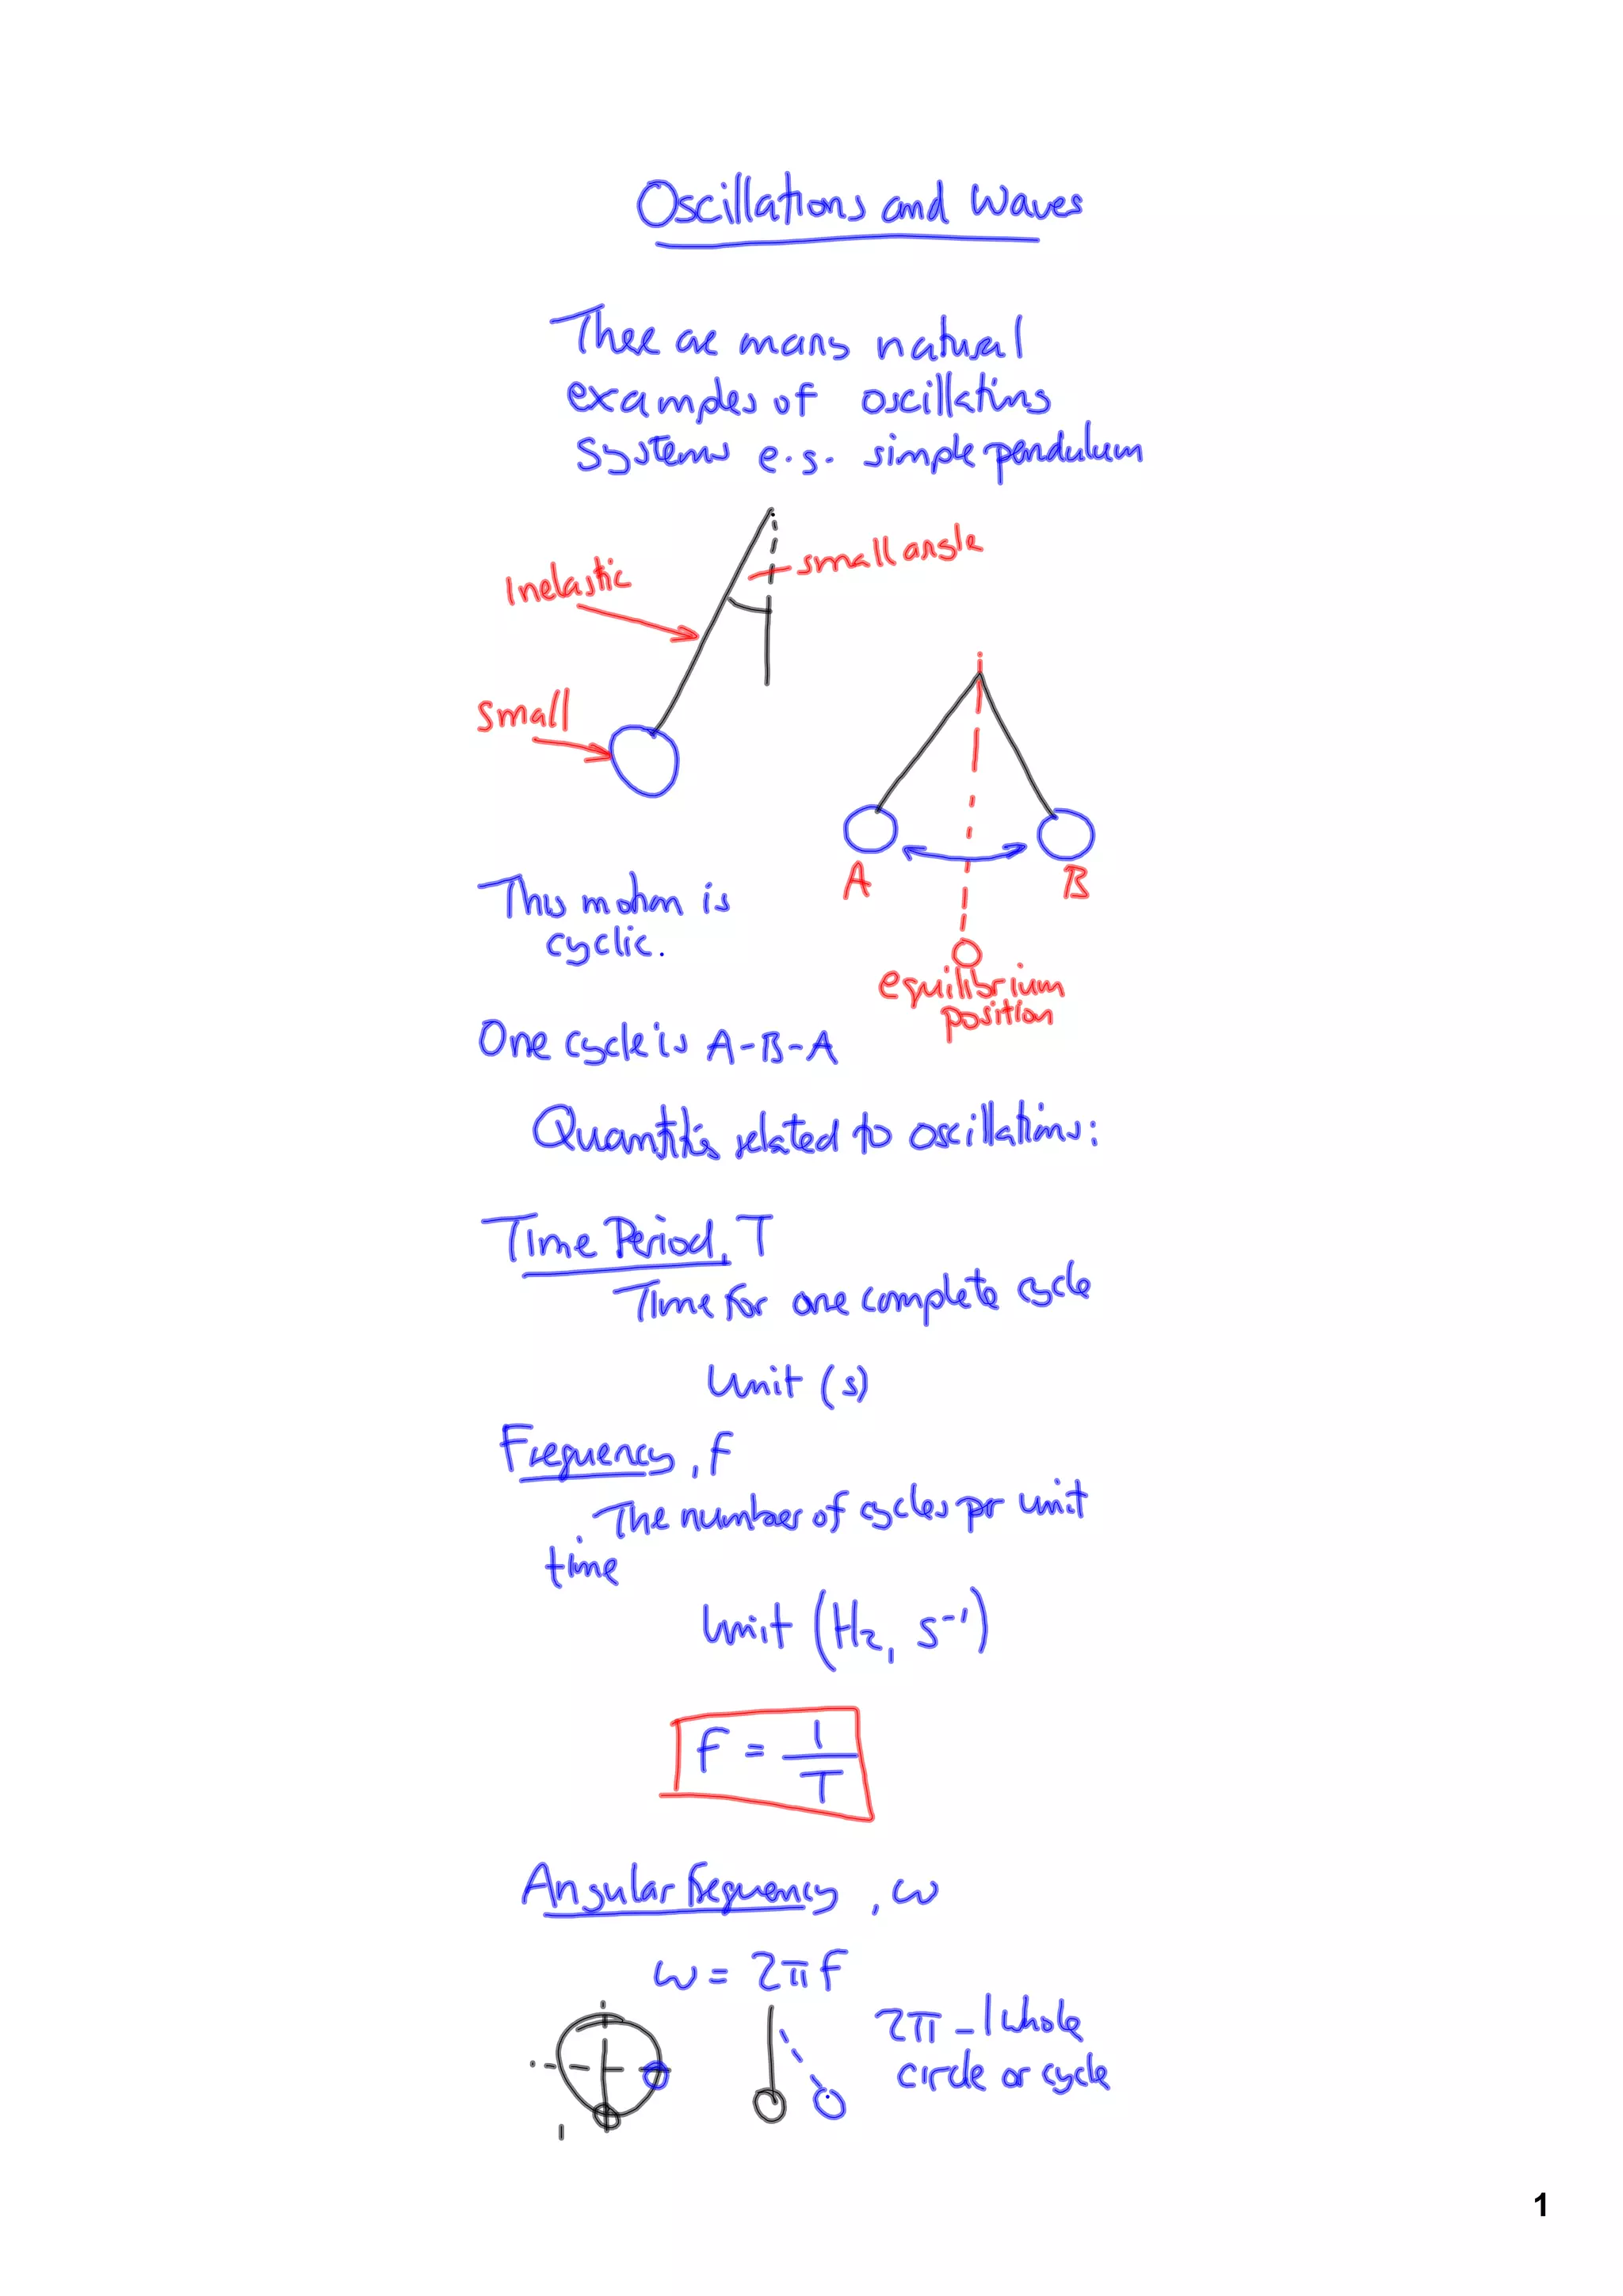 Oscillations and Waves
There are many natural
examples of oscillating
systems e.g. simple pendulum
small angle
Inelastic
small
A
B
This motion is
cyclic.
equilibrium
position
One cycle is A-B-A
Quantities related to oscillations:
Time Period, T
Time for one complete cycle
Unit (s)
Frequency, f
The number of cycles per unit
time
Unit (Hz, s⁻¹)
f = 1/T
Angular frequency, ω
ω = 2πf
2π - 1 whole
circle or cycle
1